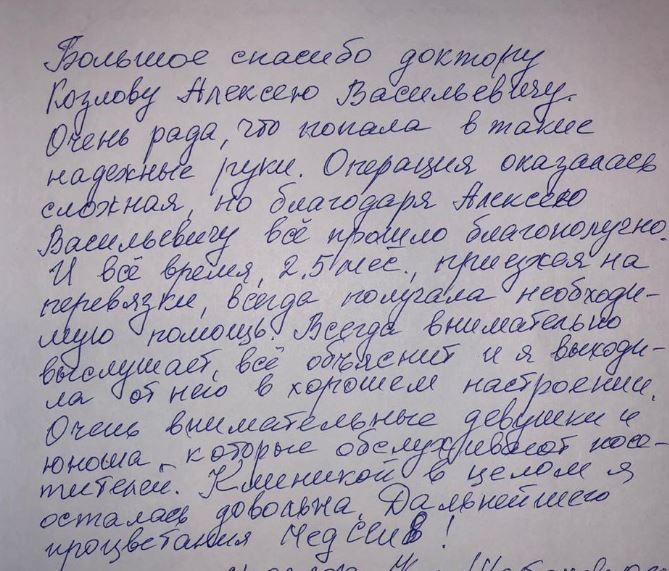 Большое спасибо доктору
Козлову Алексею Васильевичу.
Очень рада, что попала в такие
надежные руки. Операция оказалась
сложная, но благодаря Алексею
Васильевичу всё прошло благополучно.
И всё время, 2,5 мес., приезжая на
перевязки, всегда получала необходи-
мую помощь. Всегда внимательно
выслушает, всё объяснит и я выходи-
ла от него в хорошем настроении.
Очень внимательные девушки и
юноша, которые обслуживают посе-
тителей. Клиникой в целом я
осталась довольна. Дальнейшего
процветания !